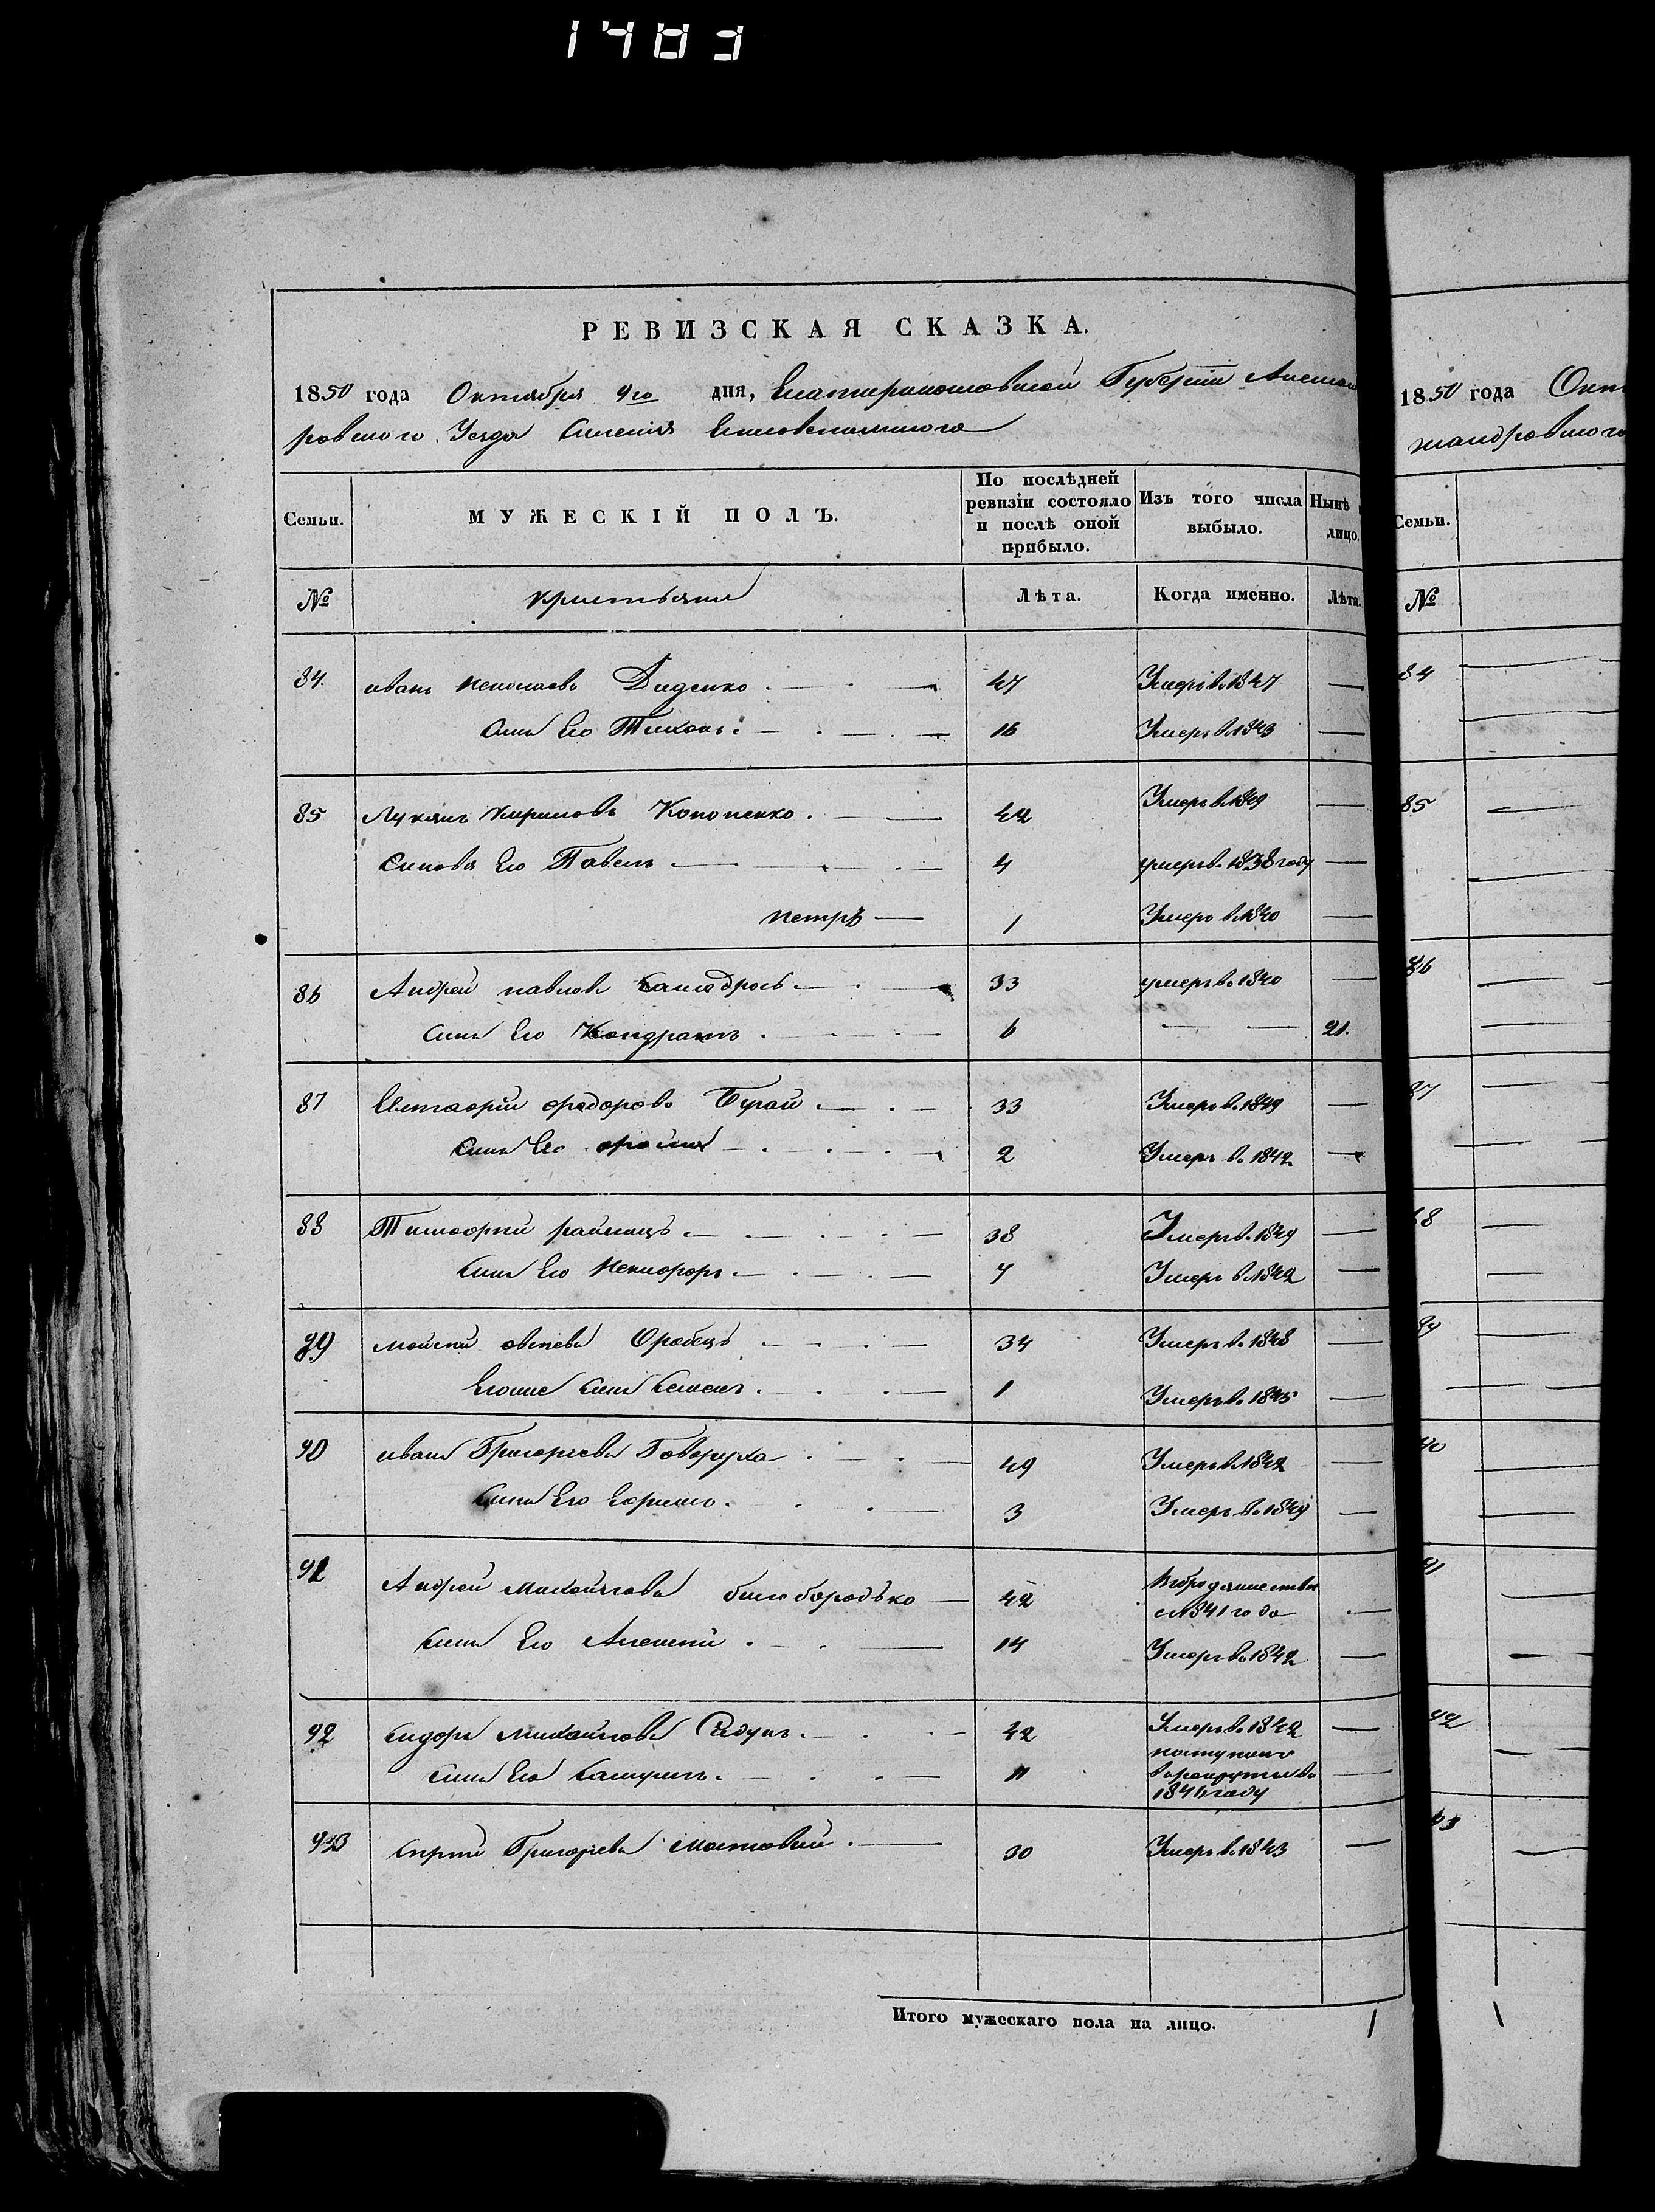 1483
РЕВИЗСКАЯ СКАЗКА.
1850 года Октября 9го дня, Екатеринославской Губернии Алексан
ровского Уезда Селения
Семьи. МУЖЕСКІЙ ПОЛЪ. По послѣдней ревизіи состояло и послѣ оной прибыло. Изъ того числа выбыло. Нынѣ лицо.
№ Крестьяне Лѣта. Когда именно. Лѣта.
84 иванъ николаевъ Диденко 47 Умеръ в. 1847 —
Сынъ Его Тихонъ 16 Умеръ в. 1843 —
85 Лукянъ кириловъ Кононенко 42 Умеръ в. 1849 —
Сыновя Его Павелъ 4 умеръ в. 1838 году —
петръ 1 Умеръ в. 1840 —
86 Андрей павловъ 33 умеръ в. 1840 —
Сынъ Его Кондратъ 6 — — 21.
87 Евстафий федоровъ Бугай 33 Умеръ в. 1849 —
Сынъ Его фома 2 Умеръ в. 1842 —
88 Тимофий 38 Умеръ в. 1849 —
Сынъ Его Никифоръ 7 Умеръ в. 1842 —
89 мойсий Оробецъ 34 Умеръ в. 1848 —
Егоже Сынъ Семенъ 1 Умеръ в. 1845 —
90 иванъ Григориевъ Говоруха 49 Умеръ в. 1842 —
Сынъ Его Ефримъ 3 Умеръ в. 1849 —
91 Андрей Михайловъ билобородько 42 В бродяжествы с 1841 года —
Сынъ Его Алексий 14 Умеръ в. 1842 —
92 Сидоръ Михайловъ 42 Умеръ в. 1842 —
Сынъ Его Самуилъ 11 поступилъ в рекруты в. 1846 году —
93 Сергий Григориевъ Мостовий 30 Умеръ в. 1843 —
Итого мужескаго пола на лицо. 1
1850 года Окт
жандровского
Семьи.
№
84
85
86
87
88
89
90
91
92
93
1